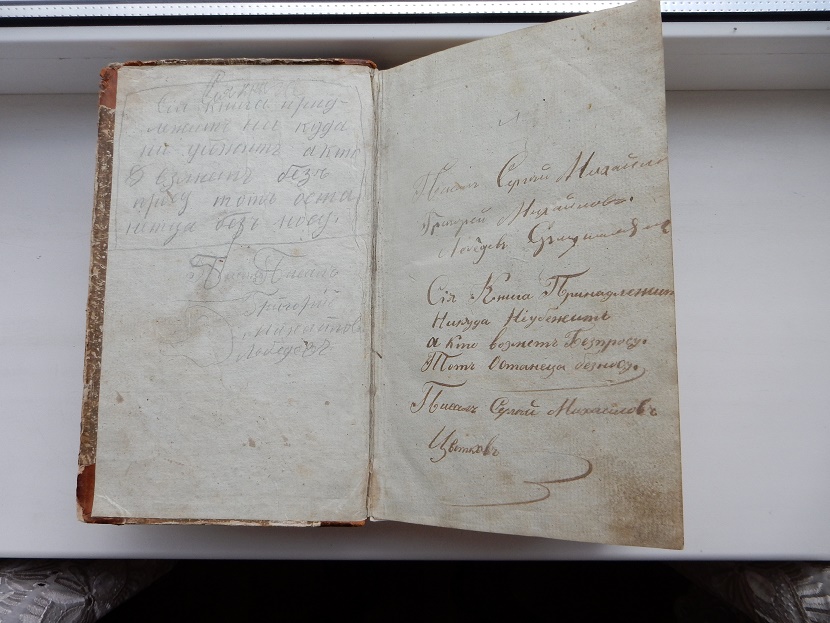 Сія книга прид-
лежитъ ни куда
ни убжитъ а кто
взометъ безъ
просу тотъ оста
нетца безъ носу.
Писалъ
Григорій
Михаиловъ
Лобедевъ
Писалъ Сергей Михайлов
Григорей Михайловъ.
Лобедевъ
Сія Книга Принадлежит
Никуда Ніубежитъ
а кто возметъ Безпросу.
Тотъ Останеца безносу.
Писалъ Сергей Михаиловъ
Цветковъ